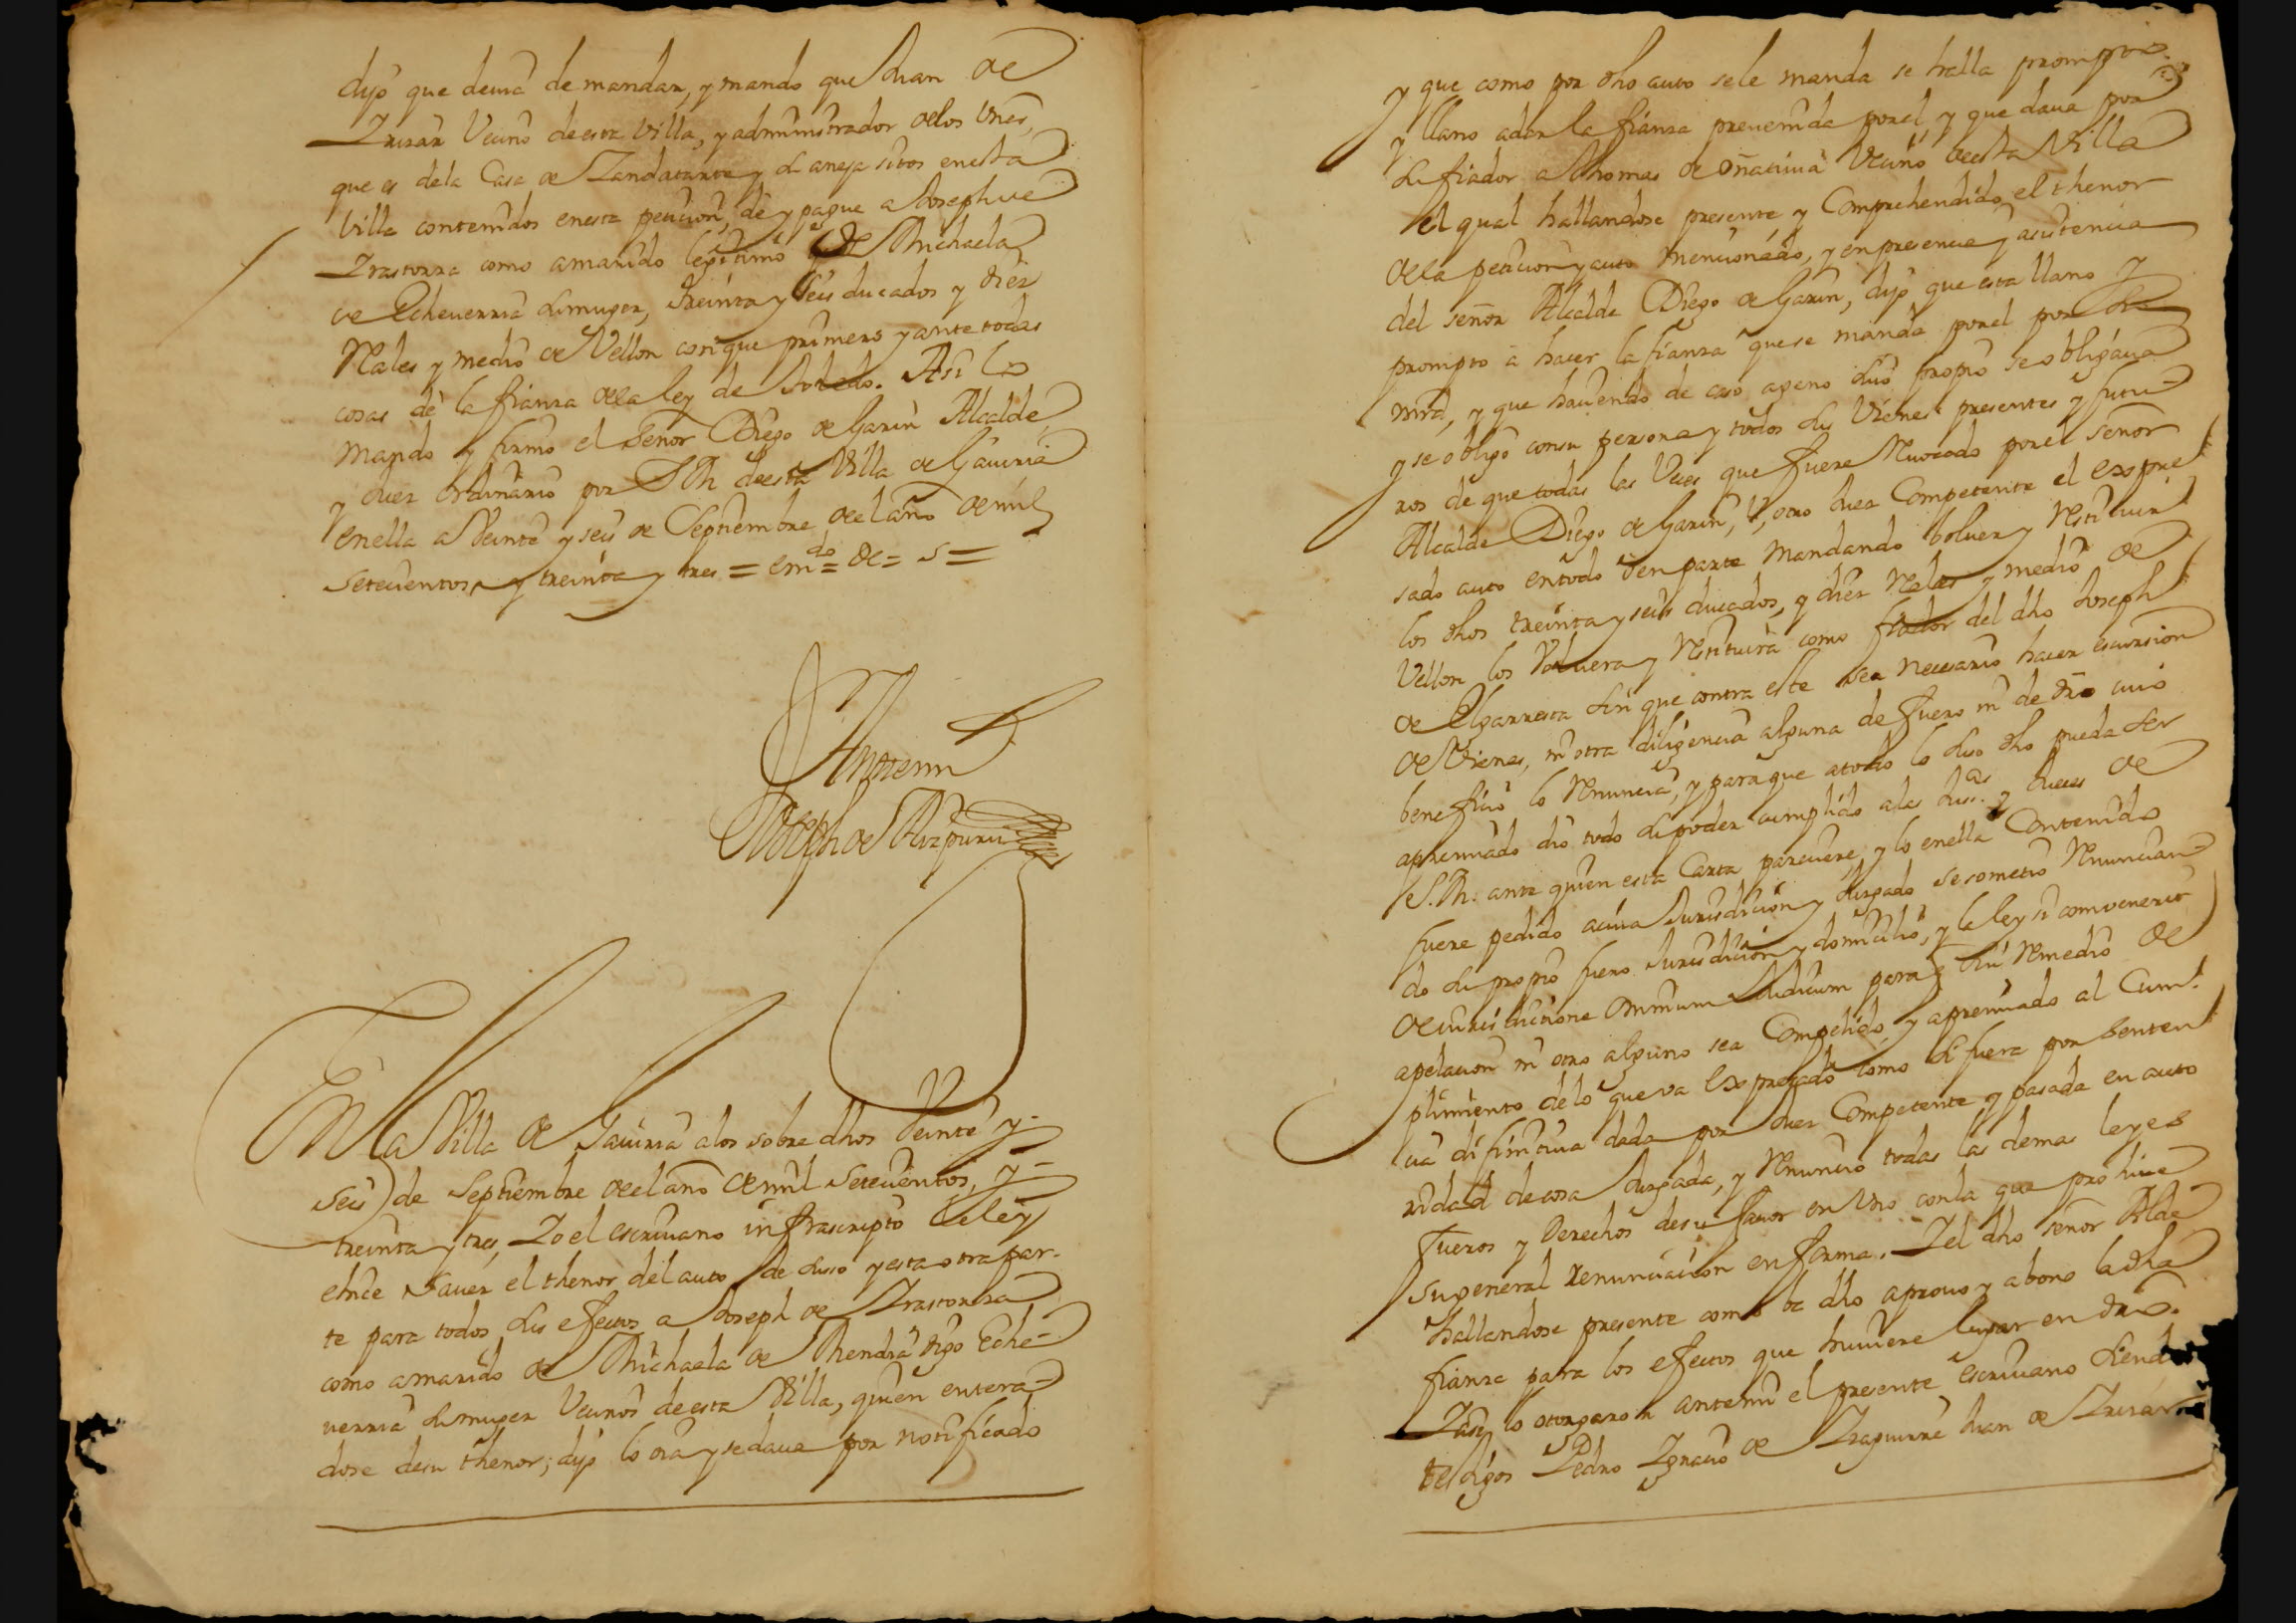 dijo que devia de mandar, y mando que Juan de
Irizar Vecino de esta Villa, y administrador de los vnes,
que es de la Casa de Zandatarte y su aneja sitos en esta
Villa contenidos en esta peticion, dè y pague a Joseph de
Irastorza como a marido legitimo de Michaela
de Echeverria su muger, treinta y seis ducados y diez
Reales y medio de Vellon con que primero y ante todas
cosas dè la fianza de la ley de Toledo. Asi lo
mando y firmo el Señor Diego de Garin Alcalde,
y Juez ordinario por S.M. de esta Villa de Gaviria
en ella a Veinte y seis de Septiembre de el año de mil
setecientos, y treinta y tres = em.do = de = s =
Ante mi
Joseph de Aizpuru
En la Villa de Gaviria a los sobre dhos Veinte y
seis de Septiembre de el año de mil setecientos, y
treinta y tres, Yo el escrivano infrascripto leley
e hice saver el thenor del auto de suso y esta otra par-
te para todos sus efectos a Joseph de Irastorza
como a marido de Michaela de Mendia digo Eche-
verria su muger Vecinos de esta Villa, quien entera-
dose de su thenor; dijo lo oia y se dava por notificado
y que como por dho auto se le manda se halla prompto
y llano a dar la fianza prevenida por el, y que dava por
su fiador a Thomas de Oñativia Vecino de esta Villa
el qual hallandose presente, y Comprehendido el thenor
de la peticion y auto mencionado, y en presencia y asistencia
del señor Alcalde Diego de Garin, dijo que esta llano y
prompto à hacer la fianza que se manda por el por su
mrd, y que haciendo de caso ageno suio propio se obligava
y se obligo con su persona y todos sus Vienes presentes y futu-
ros de que todas las Veces que fuere Revocado por el señor
Alcalde Diego de Garin, ù otro Juez Competente el expre-
sado auto en todo ò en parte mandando bolver y restituir
los dhos treinta y seis ducados, y diez Reales y medio de
Vellon los Volvera y Restituirà como fiador del dho Joseph
de Elgarresta sin que contra este sea necesario hacer escursion
de Vienes, ni otra diligencia alguna de fuero ni de dro cuio
beneficio lo Renuncia, y para que a todo lo suso dho pueda ser
apremiado dio todo su poder cumplido a las Juss.as y Jueces de
S.M. ante quien esta Carta pareciere, y lo en ella Contenido
fuere pedido a cuia Jurisdicion y Juzgado se sometio Renuncian-
do su propio fuero Jurisdicion y domicilio, y la ley si convenerit
de iurisdictione omnium Judicum para q sin Remedio de
apelacion ni otro alguno sea Compelido, y apremiado al Cum-
plimiento de lo que va Expresado como si fuera por senten-
cia difinitiva dada por Juez Competente y pasada en auto
ridad de cosa Juzgada, y Renuncio todas las demas leyes
fueros y Derechos de su favor en Vno con la que prohive
su general renunciacion en forma. Y el dho señor Alcde
hallandose presente como va dho aprovo y abono la dha
fianza para los efectos que huviere lugar en dro.
Y asi lo otorgaron ante mi el presente escrivano siendo
testigos Pedro Ygnacio de Yraguirre Juan de Irizar